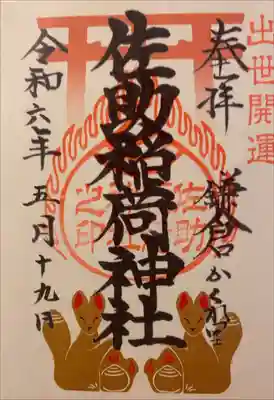 出世開運
奉拝
鎌倉かくれ里
佐助稲荷神社
令和六年五月十九日
佐助
之印